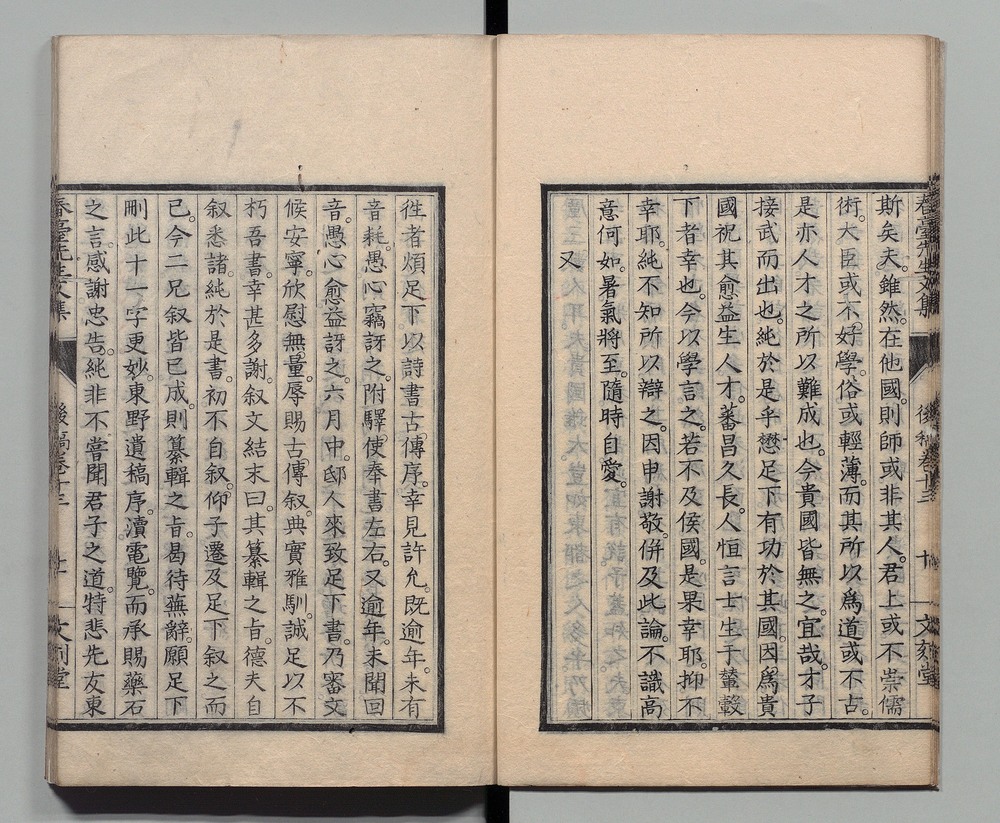 春臺先生文集 後稿卷十三 十 文刻堂
斯矣夫。雖然。在他國。則師或非其人。君上或不崇儒
術。大臣或不好學。俗或輕薄。而其所以爲道或不古。
是亦人才之所以難成也。今貴國皆無之。宜哉。才子
接武而出也。純於是乎懋足下有功於其國。因爲貴
國祝其愈益生人才。蕃昌久長。人恒言士生于輦轂
下者幸也。今以學言之。若不及侯國。是果幸耶。抑不
幸耶。純不知所以辯之。因申謝敬。併及此論。不識高
意何如。暑氣將至。隨時自愛。
又
徃者煩足下以詩書古傳序。幸見許允。既逾年。未有
音耗。愚心竊訝之。附驛使奉書左右。又逾年。未聞回
音。愚心愈益訝之。六月中。邸人來致足下書。乃審文
候安寧。欣慰無量。辱賜古傳叙。典實雅馴。誠足以不
朽吾書。幸甚多謝。叙文結末曰。其纂輯之旨。德夫自
叙悉諸。純於是書。初不自叙。仰子遷及足下叙之而
已。今二兄叙皆已成。則纂輯之旨。曷待蕪辭。願足下
刪此十一字更妙。東野遺稿序。瀆電覽。而承賜藥石
之言。感謝忠告。純非不嘗聞君子之道。特悲先友東
春臺先生文集 後稿卷十三 十一 文刻堂